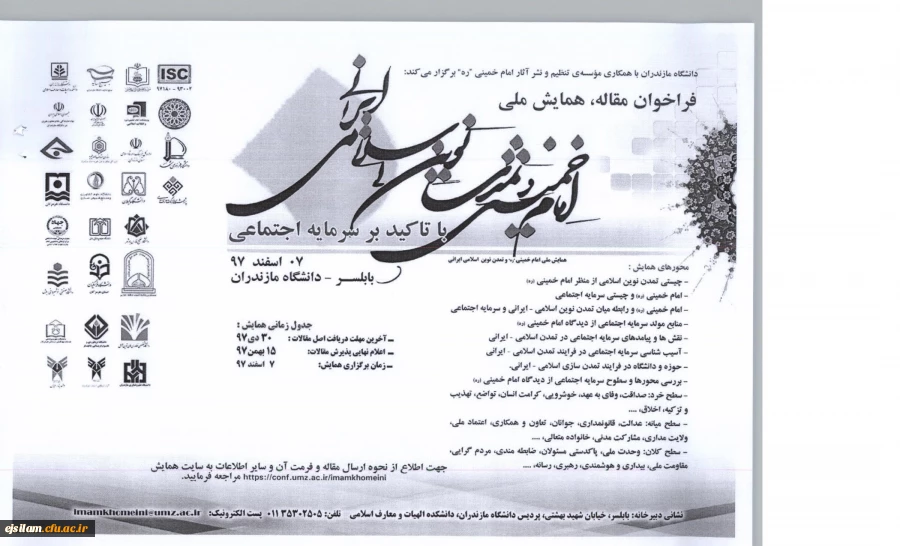 دانشگاه مازندران با همکاری مؤسسه‌ی تنظیم و نشر آثار امام خمینی "ره" برگزار می‌کند:
فراخوان مقاله، همایش ملی
امام خمینی و تمدن نوین اسلامی ایرانی
با تاکید بر سرمایه اجتماعی
همایش ملی امام خمینی (ره) و تمدن نوین اسلامی ایرانی
۰۷ اسفند ۹۷
بابلسر - دانشگاه مازندران
محورهای همایش:
- چیستی تمدن نوین اسلامی از منظر امام خمینی (ره)
- امام خمینی (ره) و چیستی سرمایه اجتماعی
- امام خمینی (ره) و رابطه میان تمدن نوین اسلامی - ایرانی و سرمایه اجتماعی
- منابع مولد سرمایه اجتماعی از دیدگاه امام خمینی (ره)
- نقش ها و پیامدهای سرمایه اجتماعی در تمدن اسلامی - ایرانی
- آسیب شناسی سرمایه اجتماعی در فرایند تمدن اسلامی - ایرانی
- حوزه و دانشگاه در فرایند تمدن سازی اسلامی - ایرانی.
- بررسی محورها و سطوح سرمایه اجتماعی از دیدگاه امام خمینی (ره)
- سطح خرد: صداقت، وفای به عهد، خوشرویی، کرامت انسان، تواضع، تهذیب
و تزکیه، اخلاق، ....
- سطح میانه: عدالت، قانونمداری، جوانان، تعاون و همکاری، اعتماد ملی،
ولایت مداری، مشارکت مدنی، خانواده متعالی، ....
- سطح کلان: وحدت ملی، پاکدستی مسئولان، ضابطه مندی، مردم گرایی،
مقاومت ملی، بیداری و هوشمندی، رهبری، رسانه، ....
جدول زمانی همایش:
ـ آخرین مهلت دریافت اصل مقالات: ۳۰ دی ۹۷
ـ اعلام نهایی پذیرش مقالات: ۱۵ بهمن ۹۷
ـ زمان برگزاری همایش: ۷ اسفند ۹۷
ISC
۹۷۱۸۰-۹۳۰۰۲
جهت اطلاع از نحوه ارسال مقاله و فرمت آن و سایر اطلاعات به سایت همایش
https://conf.umz.ac.ir/imamkhomeini مراجعه فرمایید.
نشانی دبیرخانه: بابلسر، خیابان شهید بهشتی، پردیس دانشگاه مازندران، دانشکده الهیات و معارف اسلامی تلفن: ۰۱۱۳۵۳۰۲۵۰۵ پست الکترونیک: imamkhomeini@umz.ac.ir
ejsilam.cfu.ac.ir